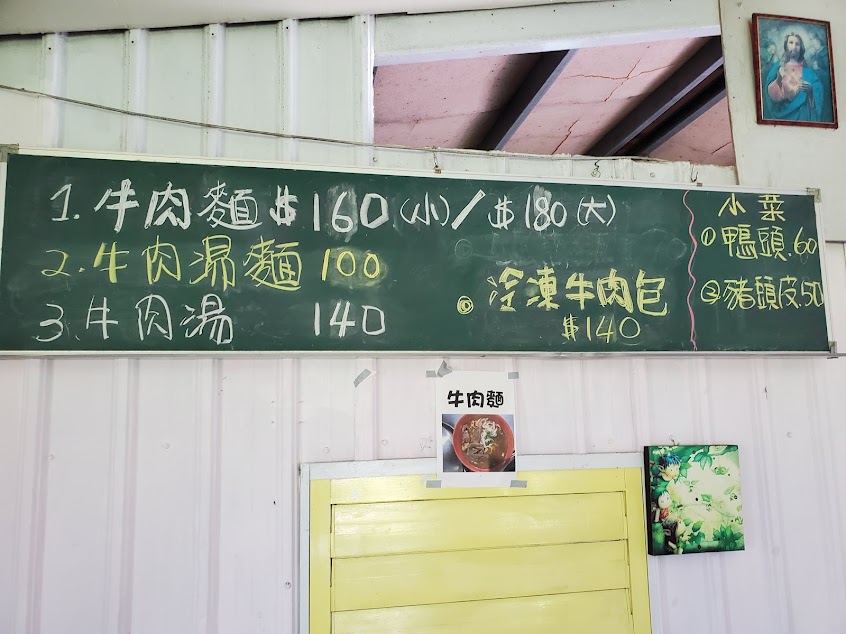 1. 牛肉麵 $160(小)/$180(大)
2. 牛肉湯麵 100
3. 牛肉湯 140
◎ 冷凍牛肉包
$140
小菜
① 鴨頭.60
② 豬頭皮.50
牛肉麵